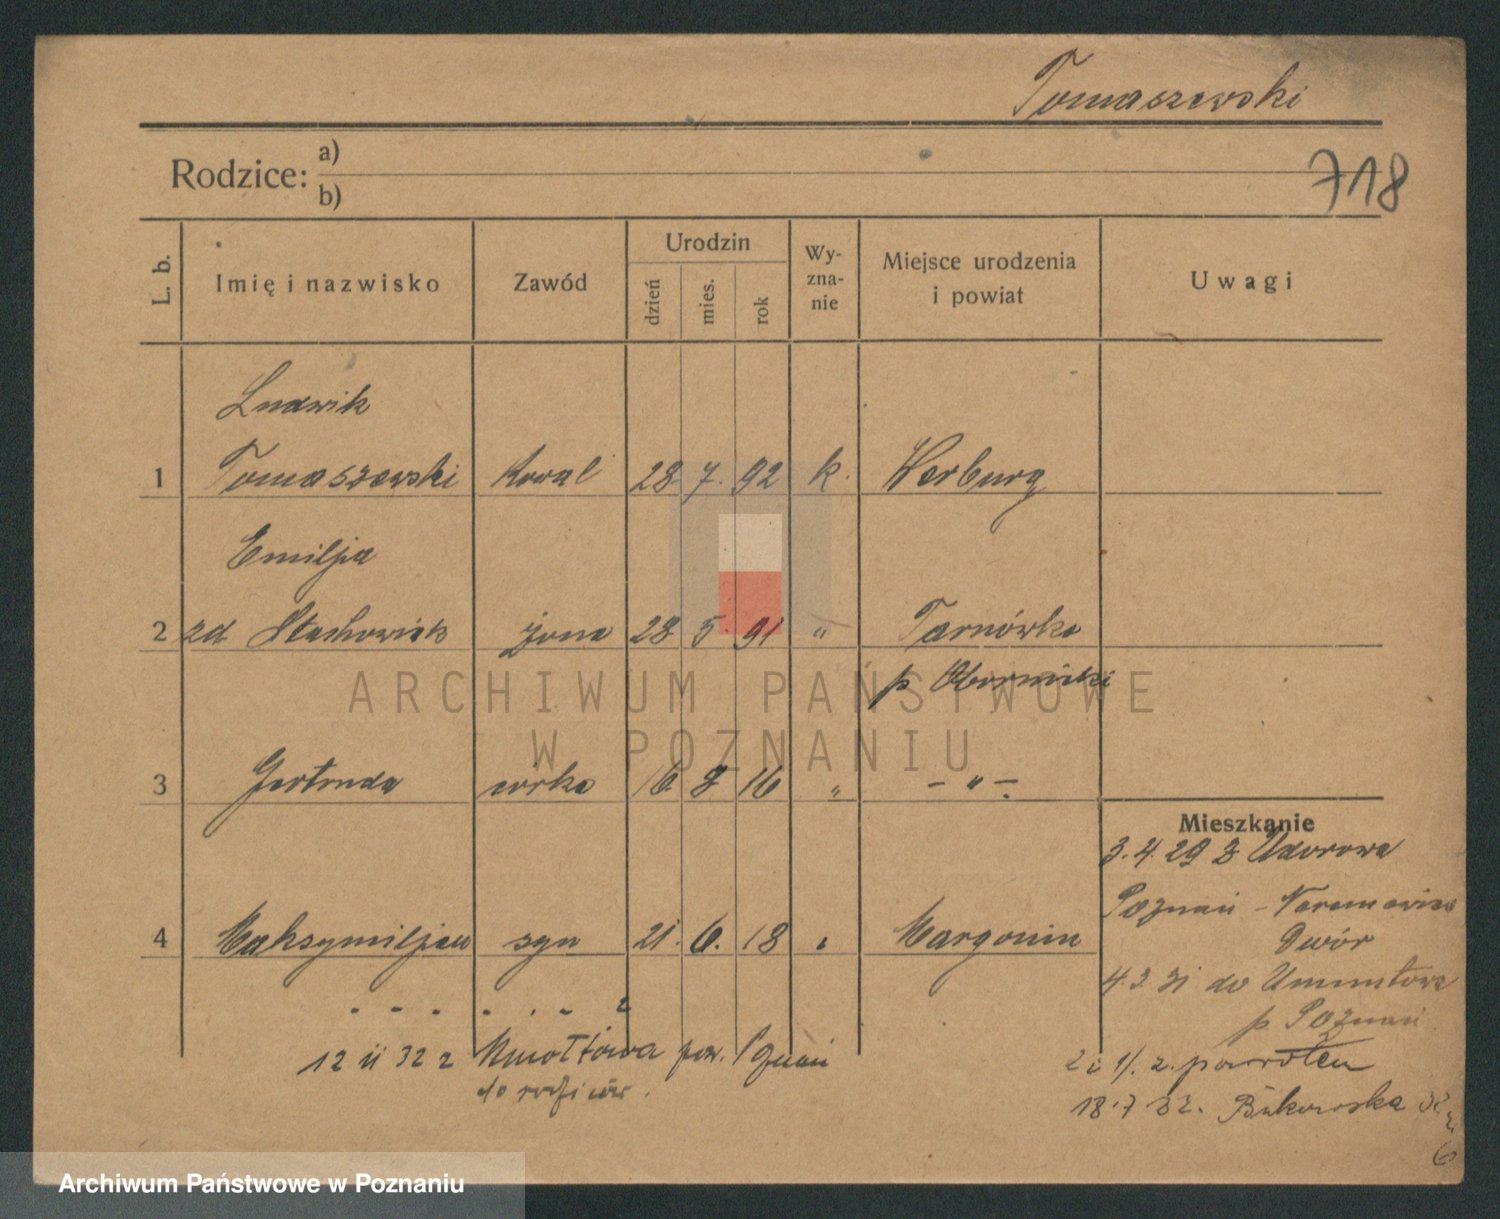 Tomaszewski
Rodzice: a)
b)
718
L. b.
Imię i nazwisko
Zawód
Urodzin
dzień
mies.
rok
Wy-
zna-
nie
Miejsce urodzenia
i powiat
Uwagi
Ludwik
1 Tomaszewski Kowal 28. 7. 92 k. Herburg
Emilja
2 zd Stachowiak żona 28 5. 91 " Tarnówko
p Oborniki
ARCHIWUM PAŃSTWOWE
W POZNANIU
3 Gertruda córka 16. 8 16 " - " -
Mieszkanie
3. 4. 29 z
Poznań - Naramowice
Dwór
4 Maksymiljan syn 21. 6. 18 Margonin
do
p Poznań
12 11 32 z pow. Poznań
do rodziców.
z powrotem
18.7 32. Bukowska 32
6
Archiwum Państwowe w Poznaniu